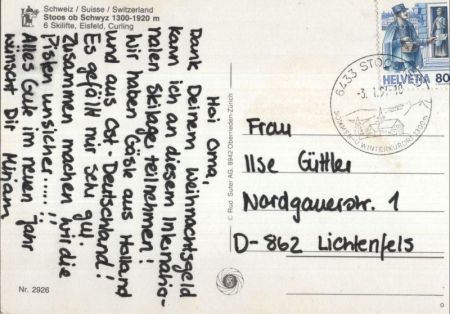 Schweiz / Suisse / Switzerland
Stoos ob Schwyz 1300-1920 m
6 Skilifte, Eisfeld, Curling
Hoi Oma,
Dank Deinem Weihnachtsgeld
kann ich an diesem Internatio-
nalen Skilager teilnehmen!
Wir haben Gäste aus Holland
und aus Ost-Deutschland!
Es gefällt mir sehr gut.
Zusammen machen wir die
Pisten unsicher....!!
Alles Gute im neuen Jahr
wünscht Dir Miriam
Nr. 2926
© Rud. Suter AG, 8942 Oberrieden-Zürich
HELVETIA 80
6433 STOOS
SOMMER- U. WINTERKURORT 1300m
Frau
Ilse Güttler
Nordgauerstr. 1
D-862 Lichtenfels